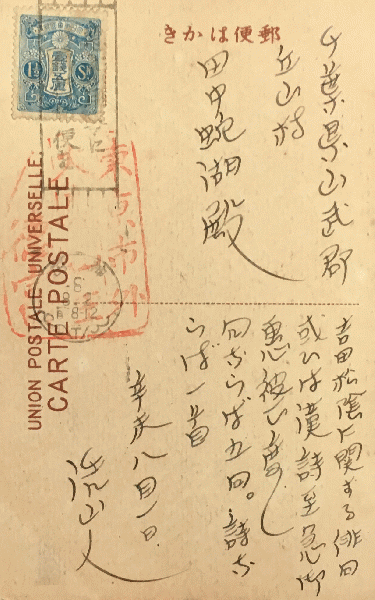 郵便はかき
千葉県山武郡
丘山村
田中蛇湖殿
吉田松陰に関する俳句
或ひは漢詩至急御
恵被下度し
句ならば五句。詩な
らば一首
辛未八月一日
UNION POSTALE UNIVERSELLE.
CARTE POSTALE
東京市外
1½ Sn